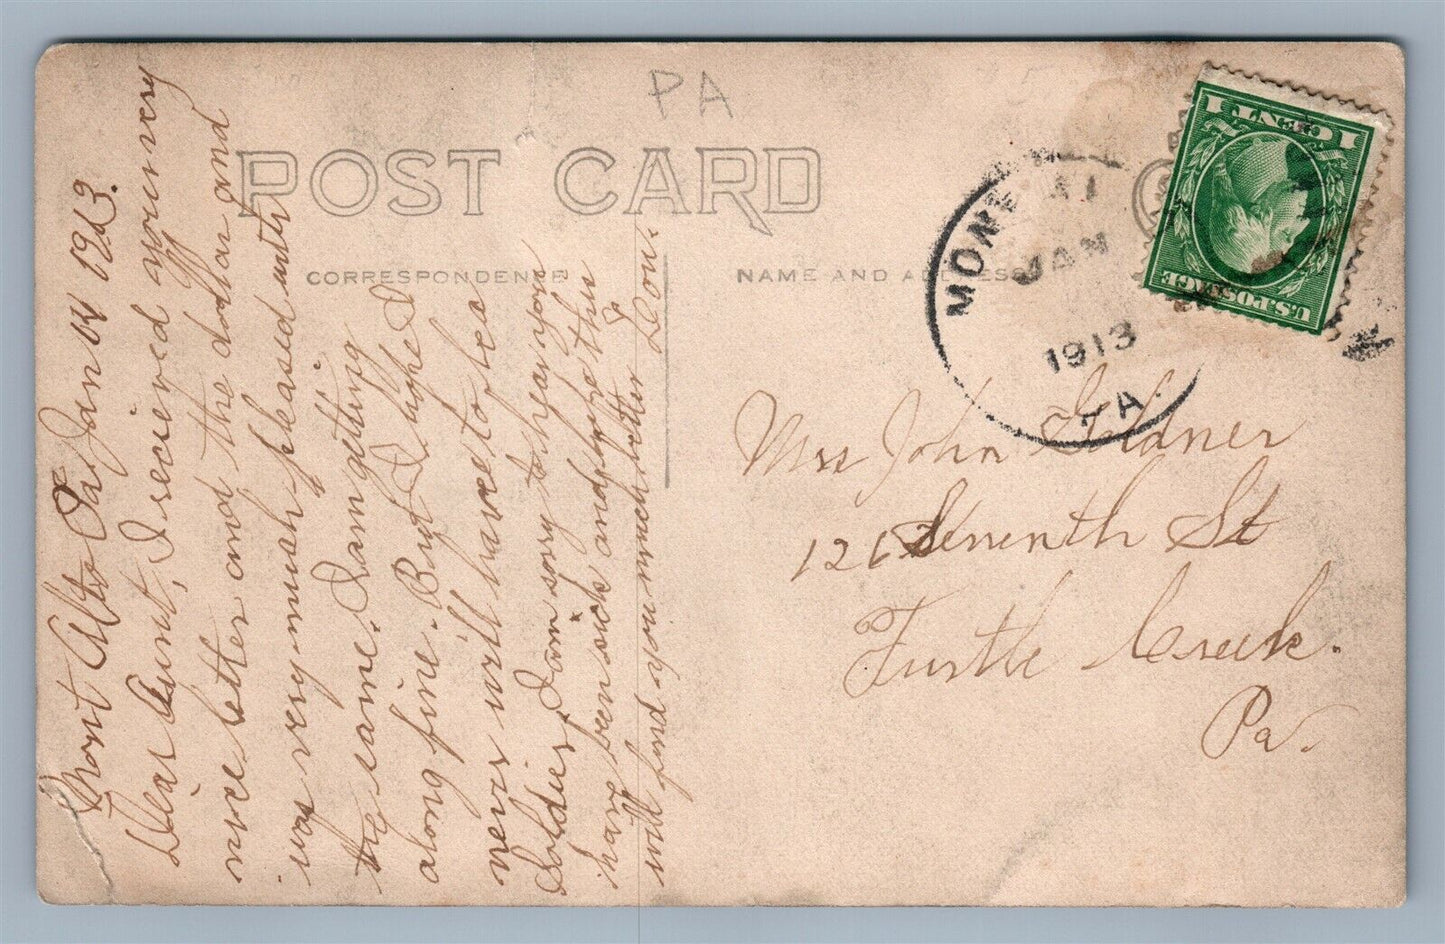 PA
POST CARD
CORRESPONDENCE
NAME AND ADDRESS
MONT AL
JAN
1913
PA.
1 CENT 1
U.S. POSTAGE
Mont Alto Pa. Jan 14 1913.
Dear Aunt, I recieved your very
nice letter and the dollar and
was very mush pleased with
the same. I am getting
along fine. But I hope I
never will have to be a
Soldier, I am sorry to hear you
have been sick and hope this
will find you much better Lou.
Mrs John Goldner
126 Seventh St
Turtle Creek.
Pa.